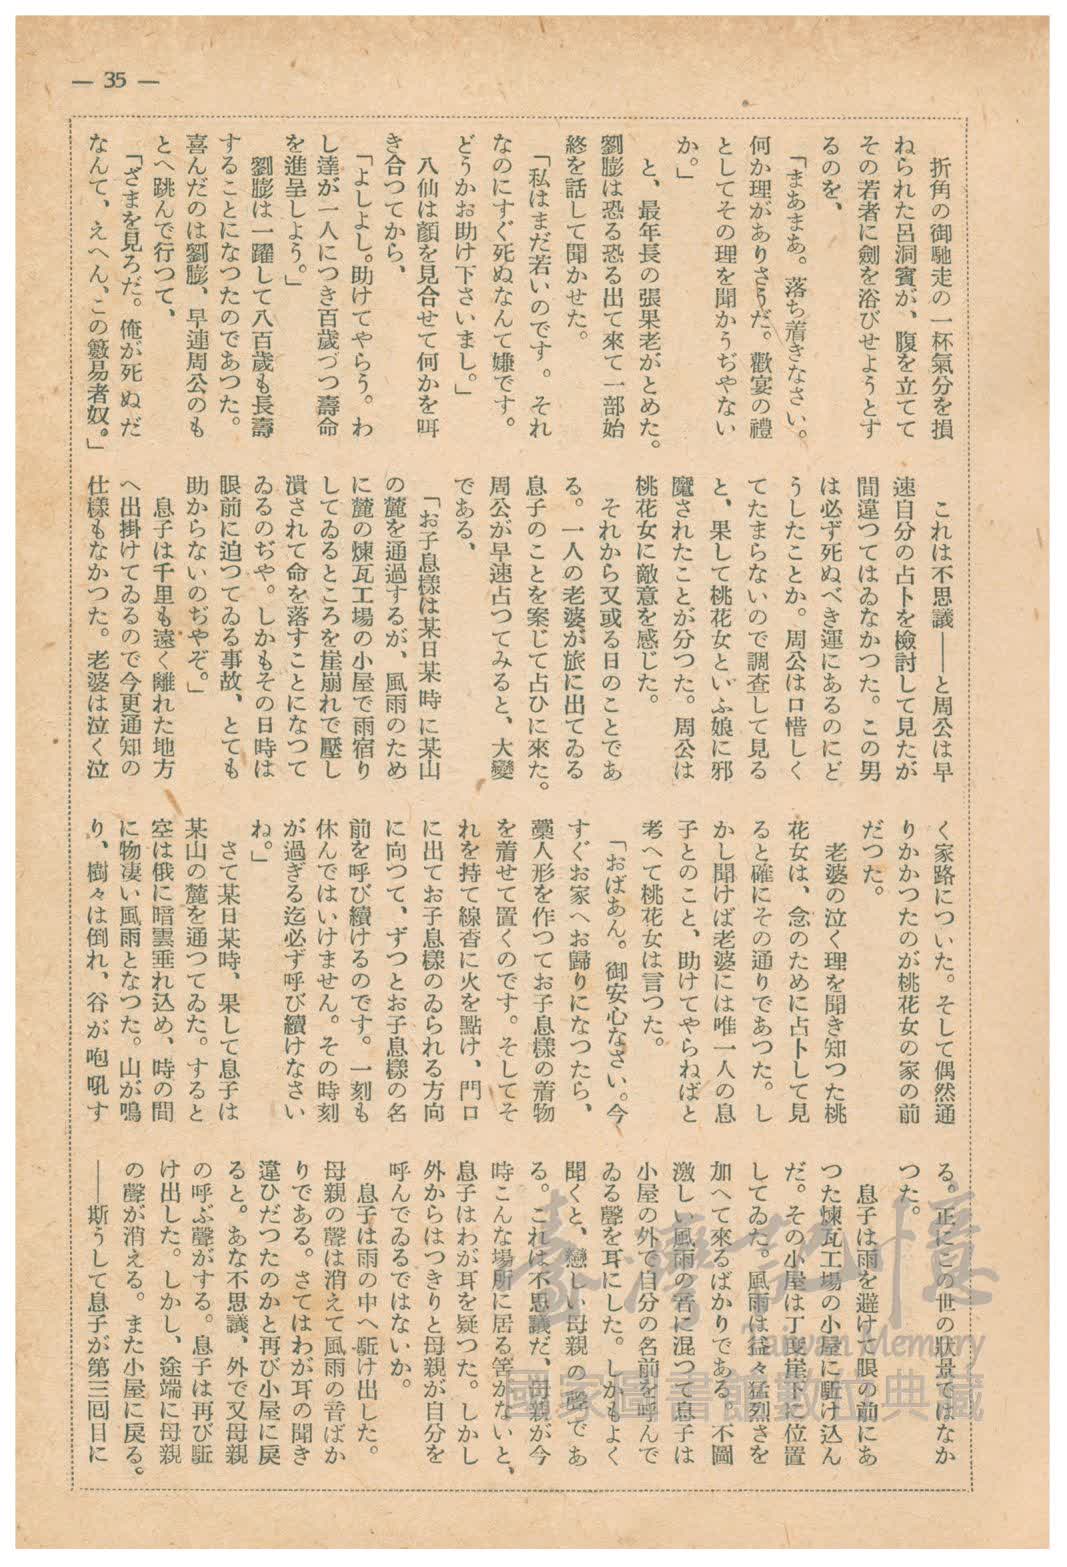 — 35 —
折角の御馳走の一杯氣分を損
ねられた呂洞賓が、腹を立てて
その若者に劍を浴びせようとす
るのを、
「まあまあ。落ち着きなさい。
何か理がありさうだ。歡宴の禮
としてその理を聞かうぢやない
か。」
と、最年長の張果老がとめた。
劉膨は恐る恐る出て來て一部始
終を話して聞かせた。
「私はまだ若いのです。それ
なのにすぐ死ぬなんて嫌です。
どうかお助け下さいまし。」
八仙は顔を見合せて何かを咡
き合つてから、
「よしよし。助けてやらう。わ
し達が一人につき百歲づつ壽命
を進呈しよう。」
劉膨は一躍して八百歲も長壽
することになつたのであつた。
喜んだのは劉膨、早速周公のも
とへ跳んで行つて、
「ざまを見ろだ。俺が死ぬだ
なんて、えへん、この籔易者奴。」
これは不思議——と周公は早
速自分の占卜を檢討して見たが
間違つてはゐなかつた。この男
は必ず死ぬべき運にあるのにど
うしたことか。周公は口惜しく
てたまらないので調査して見る
と、果して桃花女といふ娘に邪
魔されたことが分つた。周公は
桃花女に敵意を感じた。
それから又或る日のことであ
る。一人の老婆が旅に出てゐる
息子のことを案じて占ひに來た。
周公が早速占つてみると、大變
である、
「お子息樣は某日某時に某山
の麓を通過するが、風雨のため
に麓の煉瓦工場の小屋で雨宿り
してゐるところを崖崩れで壓し
潰されて命を落すことになつて
ゐるのぢや。しかもその日時は
眼前に迫つてゐる事故、とても
助からないのぢやぞ。」
息子は千里も遠く離れた地方
へ出掛けてゐるので今更通知の
仕樣もなかつた。老婆は泣く泣
く家路についた。そして偶然通
りかかつたのが桃花女の家の前
だつた。
老婆の泣く理を聞き知つた桃
花女は、念のために占卜して見
ると確にその通りであつた。し
かし聞けば老婆には唯一人の息
子とのこと、助けてやらねばと
考へて桃花女は言つた。
「おばあん。御安心なさい。今
すぐお家へお歸りになつたら、
藁人形を作つてお子息樣の着物
を着せて置くのです。そしてそ
れを持て線香に火を點け、門口
に出てお子息樣のゐられる方向
に向つて、ずつとお子息樣の名
前を呼び續けるのです。一刻も
休んではいけません。その時刻
が過ぎる迄必ず呼び續けなさい
ね。」
さて某日某時、果して息子は
某山の麓を通つてゐた。すると
空は俄に暗雲垂れ込め、時の間
に物凄い風雨となつた。山が鳴
り、樹々は倒れ、谷が咆吼す
る。正にこの世の狀景ではなか
つた。
息子は雨を避けて眼の前にあ
つた煉瓦工場の小屋に駈け込ん
だ。その小屋は丁度崖下に位置
してゐた。風雨は益々猛烈さを
加へて來るばかりである。不圖
激しい風雨の音に混つて息子は
小屋の外で自分の名前を呼んで
ゐる聲を耳にした。しかもよく
聞くと、戀しい母親の聲であ
る。これは不思議だ、母親が今
時こんな場所に居る筈がないと、
息子はわが耳を疑つた。しかし
外からはつきりと母親が自分を
呼んでゐるではないか。
息子は雨の中へ駈け出した。
母親の聲は消えて風雨の音ばか
りである。さてはわが耳の聞き
違ひだつたのかと再び小屋に戾
ると。あな不思議、外で又母親
の呼ぶ聲がする。息子は再び駈
け出した。しかし、途端に母親
の聲が消える。また小屋に戾る。
——斯うして息子が第三囘目に
臺灣記憶
Taiwan Memory
國家圖書館數位典藏